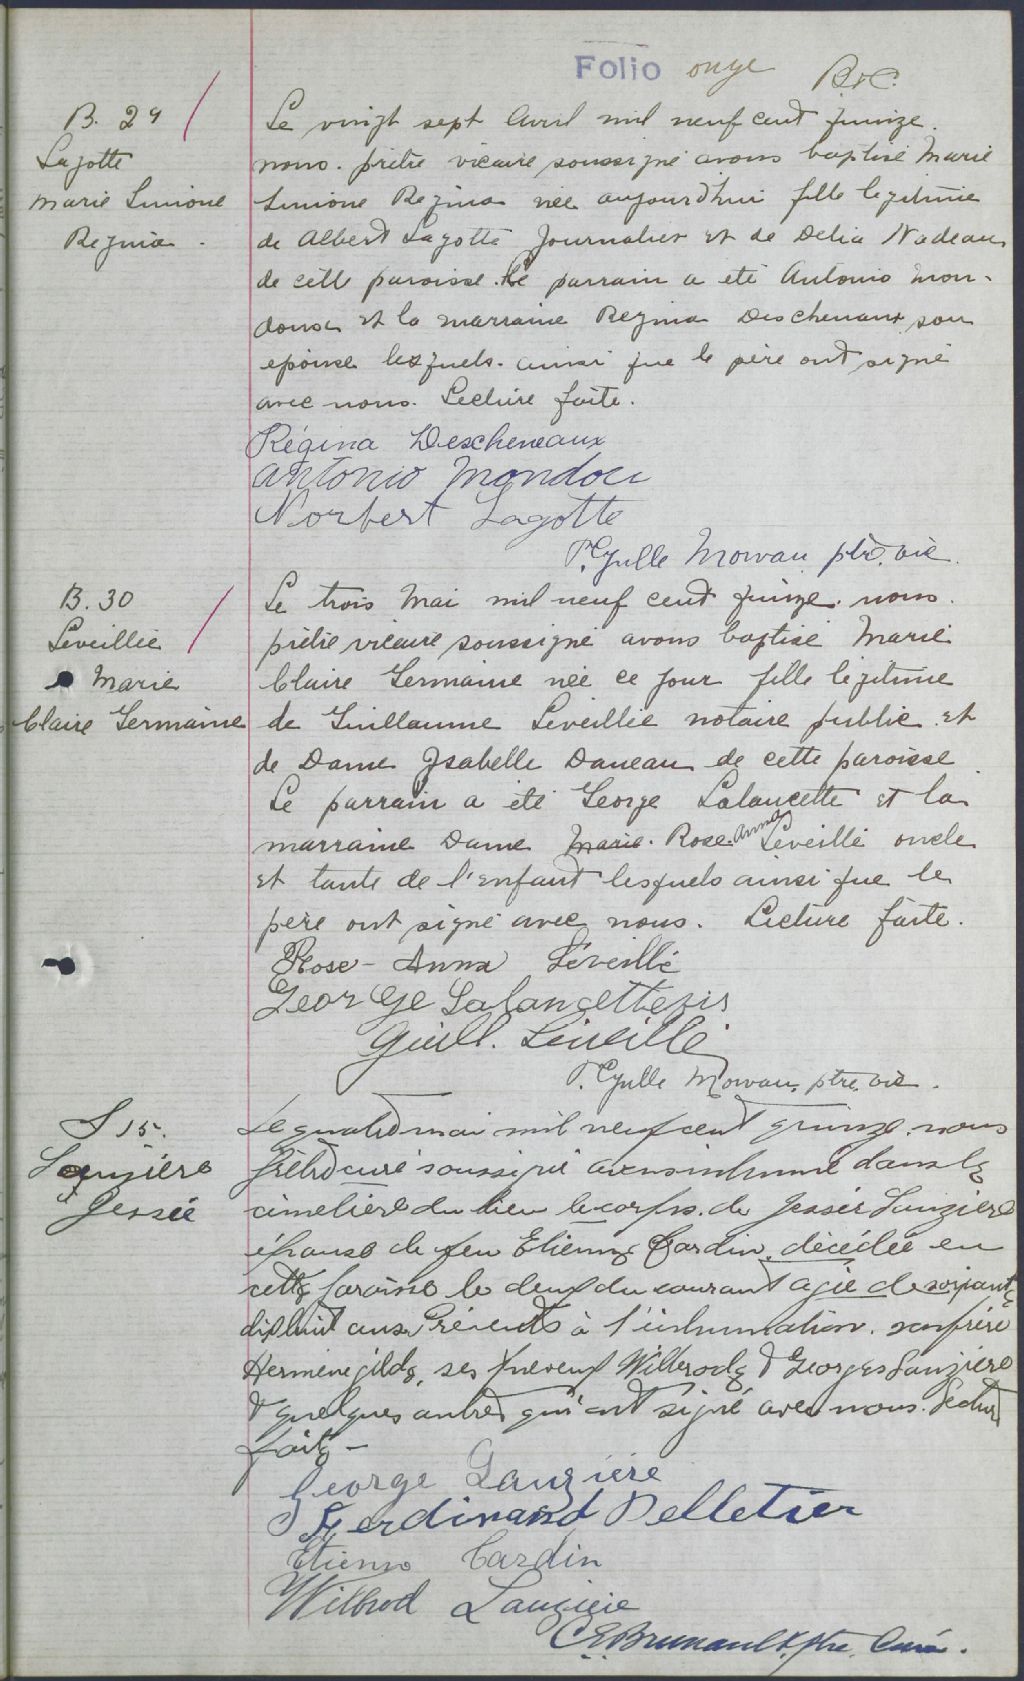 Folio onze B+C.
B. 29
Lagotte
Marie Simone
Regina.
Le vingt sept Avril mil neuf cent quinze.
nous. prêtre vicaire soussigné avons baptisé Marie
Simone Regina née aujourd'hui fille legitime
de Albert Lagotte Journalier et de Delia Nadeau
de cette paroisse. Le parrain a été Antonio Mon-
dou et la marraine Regina Descheneaux son
epouse lesquels. ainsi que le père ont signé
avec nous. Lecture faite.
Régina Descheneaux
Antonio Mondou
Norbert Lagotte
ptre. vic.
B. 30
Leveillée
Marie
Claire Germaine
Le trois Mai mil neuf cent quinze. nous.
prêtre vicaire soussigné avons baptisé Marie
Claire Germaine née ce jour fille légitime
de Guillaume Leveillée notaire public et
de Dame Isabelle Daneau de cette paroisse
Le parrain a été George Lalancette et la
marraine Dame Marie. Rose. Anna Leveillé oncle
et tante de l'enfant lesquels ainsi que le
père ont signé avec nous. Lecture faite.
Rose-Anna Léveillé
George Lalancette fils
Guill. Léveillé
ptre. vic.
S 15.
Lauzière
Jessée
Le quatre mai mil neuf cent quinze. nous
prêtre curé soussigné avons inhumé dans le
cimetière du lieu le corps. de Jessée Lauzière
épouse de feu Etienne Cardin. décédée en
cette paroisse le deux du courant agée de soixante
dix huit ans. Présents à l'inhumation. son frère
Herménégilde, ses neveux Wilbrode & Georges Lauzière
& quelques autres qui ont signé avec nous. Lecture
faite -
George Lauzière
Ferdinand Pelletier
Etienne Cardin
Wilbrod Lauzière
C.E. Brunault, ptre. Curé.